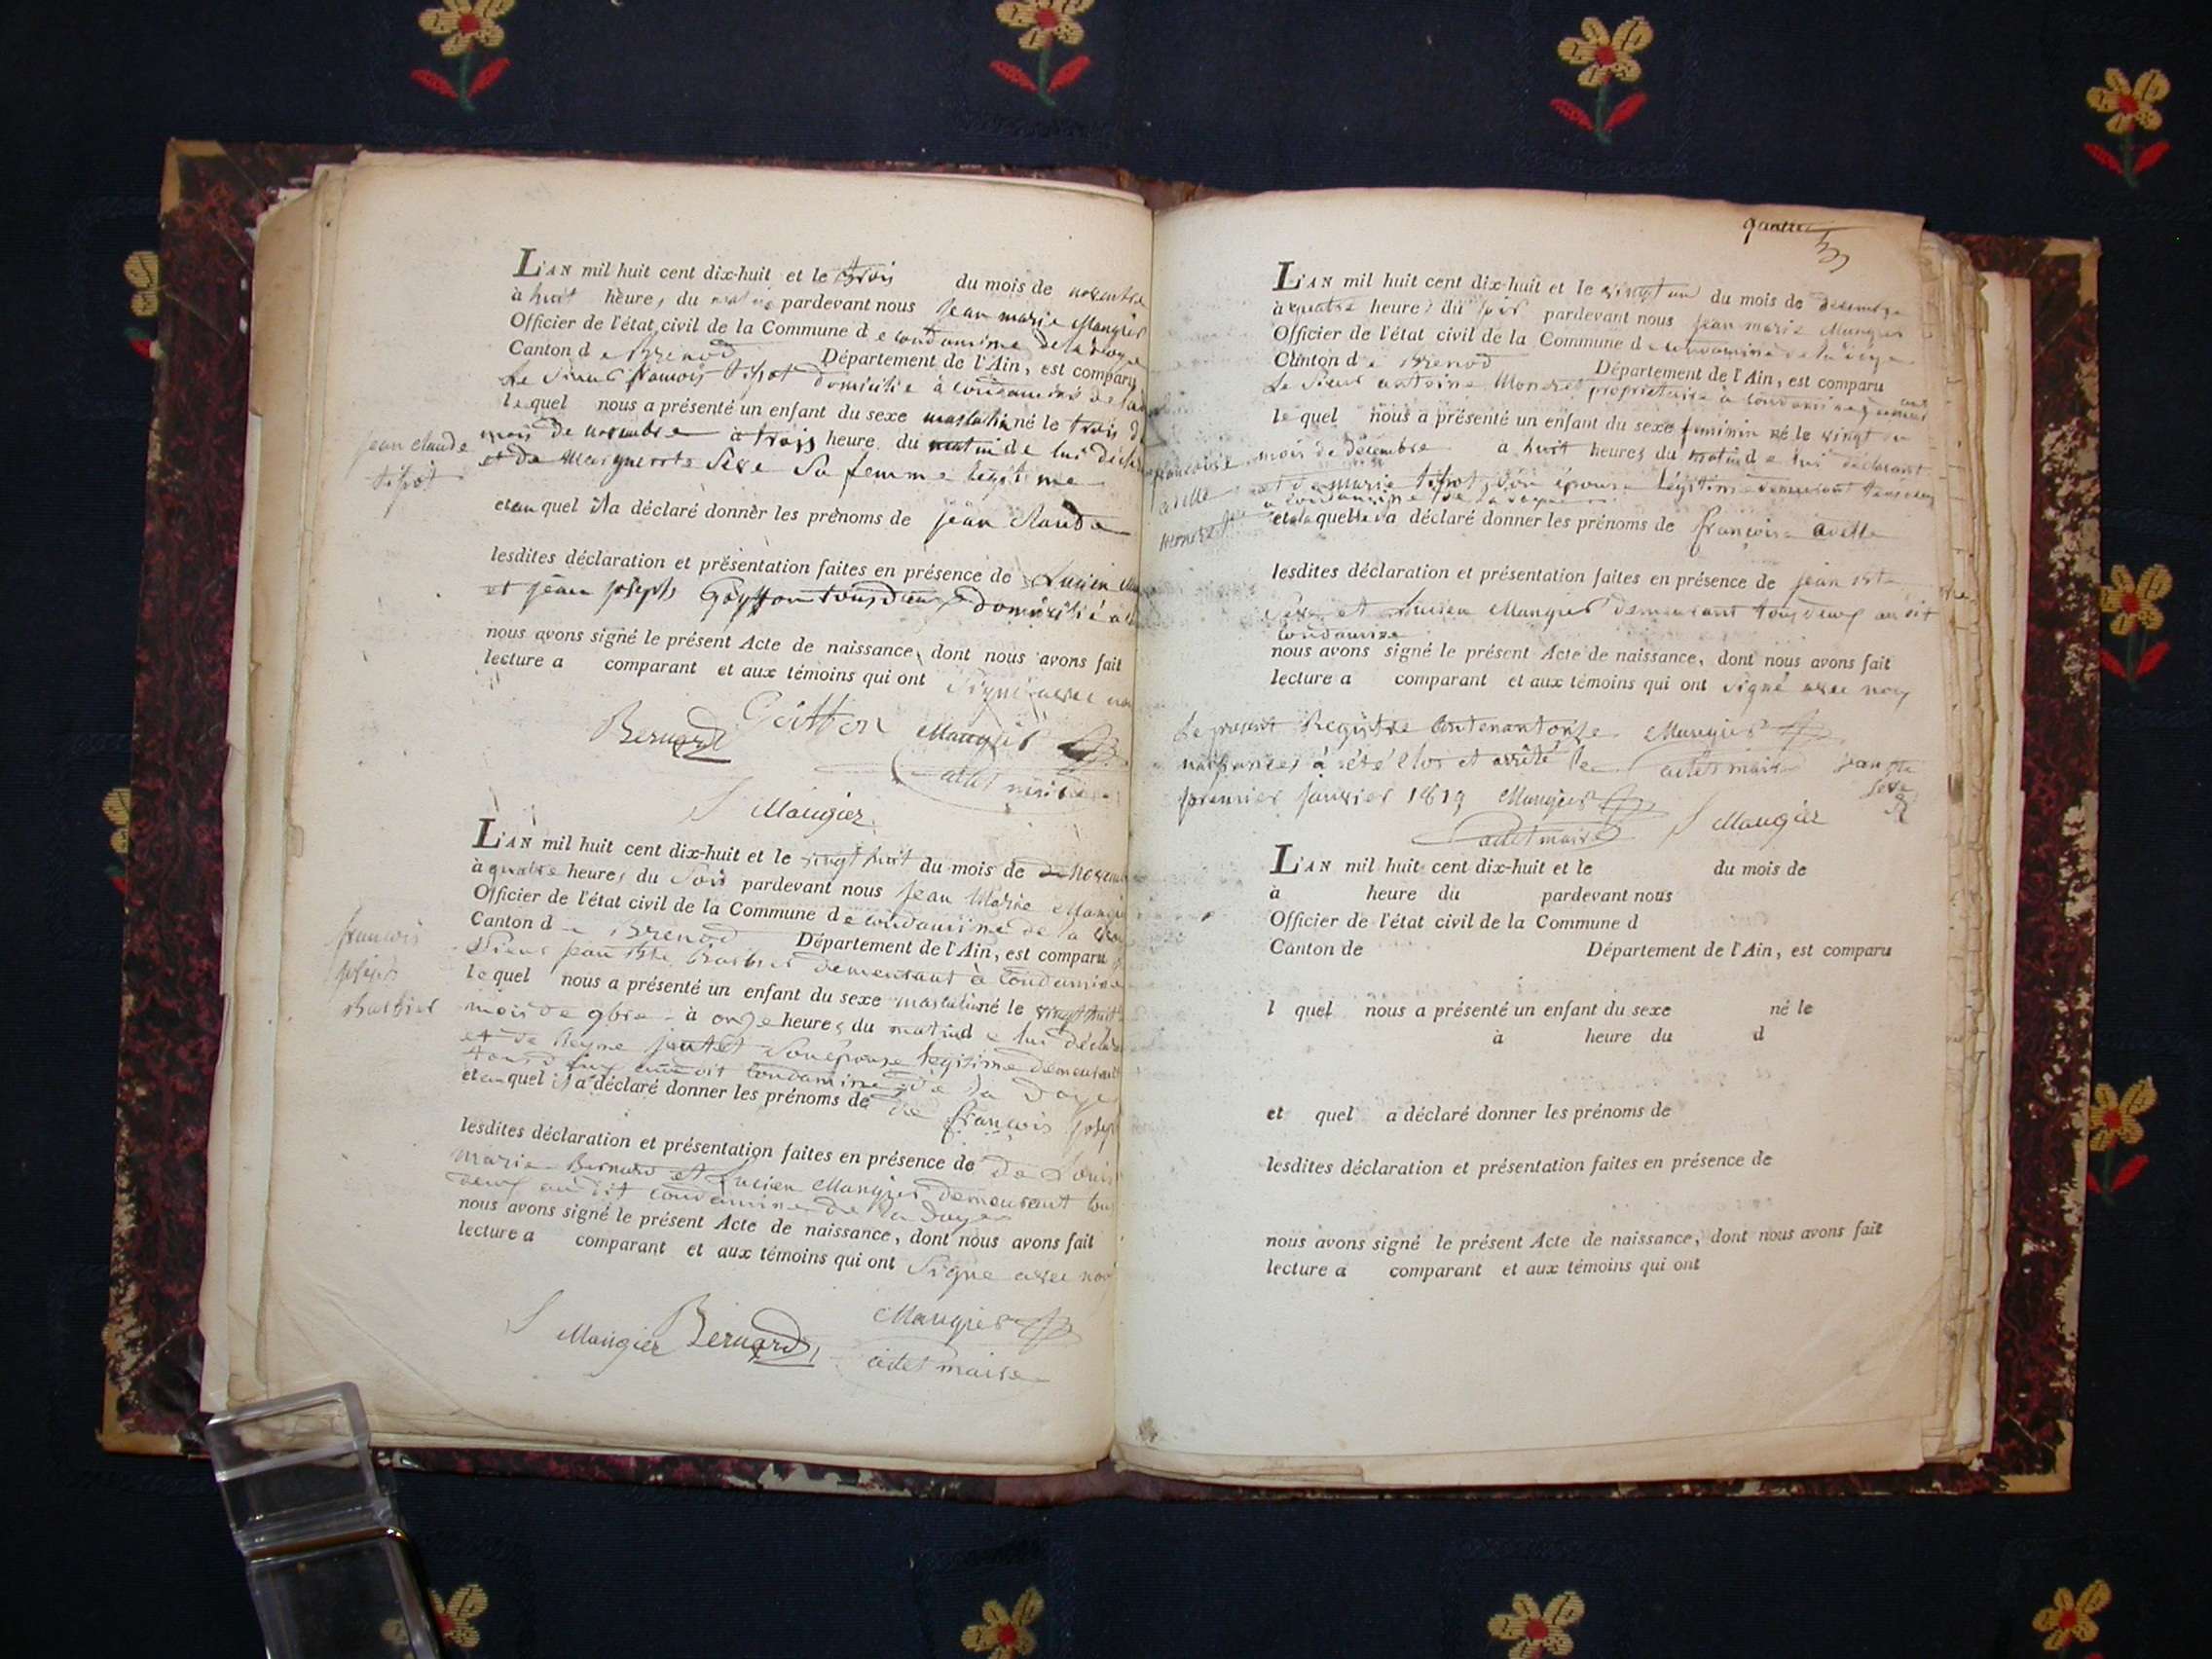 L'AN mil huit cent dix-huit et le trois du mois de novembre
à huit heures du matin pardevant nous jean marie Maugier
Officier de l'état civil de la Commune de condamine de la doye
Canton de Brenod Département de l'Ain, est comparu
Le Sieur françois tissot domicilié à condamine de la
lequel nous a présenté un enfant du sexe masculin né le trois d
mois de novembre à trois heure du matin de lui décla
et de Marguerite Seve Sa femme légitime
et auquel il a déclaré donner les prénoms de jean Claude
lesdites déclaration et présentation faites en présence de Lucien
et jean joseph tous deux domicilié a
nous avons signé le présent Acte de naissance, dont nous avons fait
lecture a comparant et aux témoins qui ont Signé avec nou
jean claude
tissot
Bernard Goitton Maugier
adet maire
Maugier
L'AN mil huit cent dix-huit et le vingt huit du mois de novem
à quatre heures du Soir pardevant nous jean Marie Maugie
Officier de l'état civil de la Commune de condamine de la doye
Canton de Brenod Département de l'Ain, est comparu
Sieur jean Bte Barbier demeurant à Condamine
lequel nous a présenté un enfant du sexe masculin né le vingt huit
mois de 9bre à onze heures du matin de lui décla
et de Reyne Son épouse légitime demeurant
tous deux audit Condamine de la Doye
et auquel il a déclaré donner les prénoms de de françois josep
lesdites déclaration et présentation faites en présence de de Louis
marie Bernard et Lucien Maugier demeurant tous
deux audit condamine de la doye
nous avons signé le présent Acte de naissance, dont nous avons fait
lecture a comparant et aux témoins qui ont Signé avec nou
françois
joseph
Barbier
Maugier Bernard Maugier
adet maire
L'AN mil huit cent dix-huit et le vingt un du mois de decembre
à quatre heures du soir pardevant nous jean marie Maugier
Officier de l'état civil de la Commune de condamine de la doye
Canton de Brenod Département de l'Ain, est comparu
Le Sieur antoine Monret propriétaire à Condamine
lequel nous a présenté un enfant du sexe feminin né le vingt un
mois de décembre a huit heures du matin de lui déclarant
et de marie tissot son épouse légitime demeurant
condamine de la doye
et à laquelle il a déclaré donner les prénoms de françoise adelle
lesdites déclaration et présentation faites en présence de jean Bte
Seve et Lucien Maugier demeurant tous deux audit
Condamine
nous avons signé le présent Acte de naissance, dont nous avons fait
lecture a comparant et aux témoins qui ont Signé avec nous
françoise
adelle
Monret
Le présent Registre Contenant onze Maugier
naissances à été clos et arrêté le adet maire jean Bte
premier janvier 1819 Maugier Seve
adet maire Maugier
L'AN mil huit cent dix-huit et le du mois de
à heure du pardevant nous
Officier de l'état civil de la Commune d
Canton de Département de l'Ain, est comparu
l quel nous a présenté un enfant du sexe né le
à heure du d
et quel a déclaré donner les prénoms de
lesdites déclaration et présentation faites en présence de
nous avons signé le présent Acte de naissance, dont nous avons fait
lecture a comparant et aux témoins qui ont